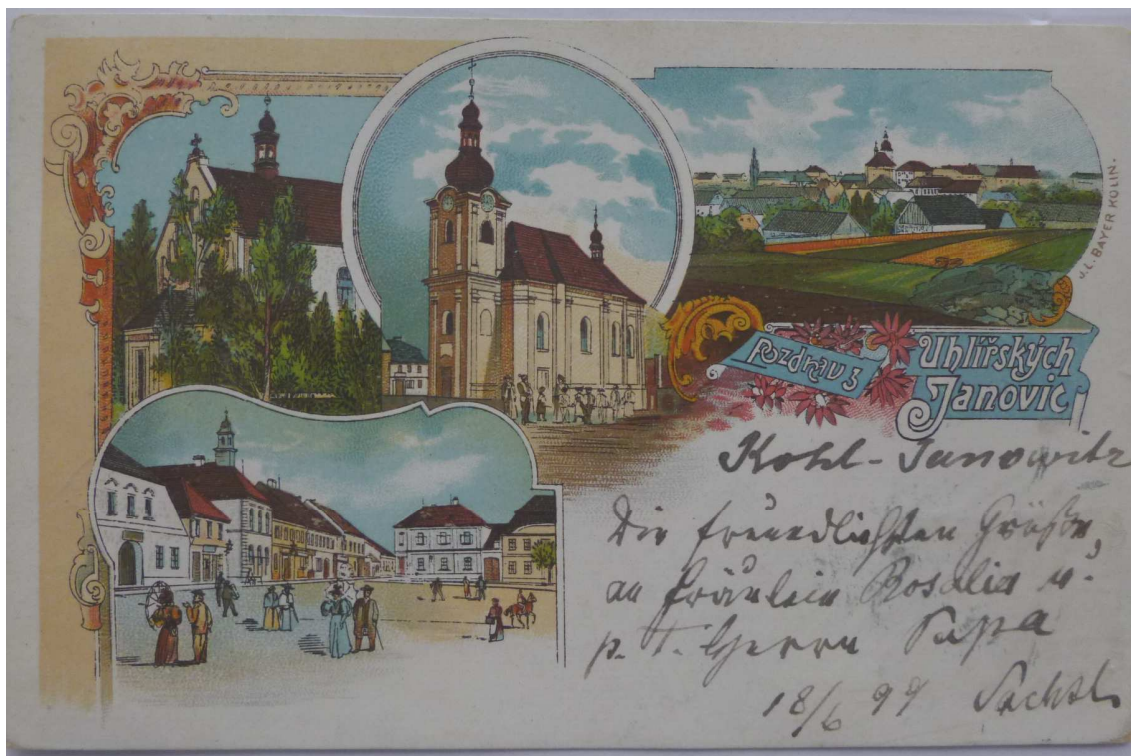 J. L. BAYER KOLIN.
Pozdrav z
Uhlířských
Janovic
Kohl-Janowitz
Die freundlichsten Grüße,
an Fräulein Rosalia u.
p. T. Herrn Papa
18/6 99